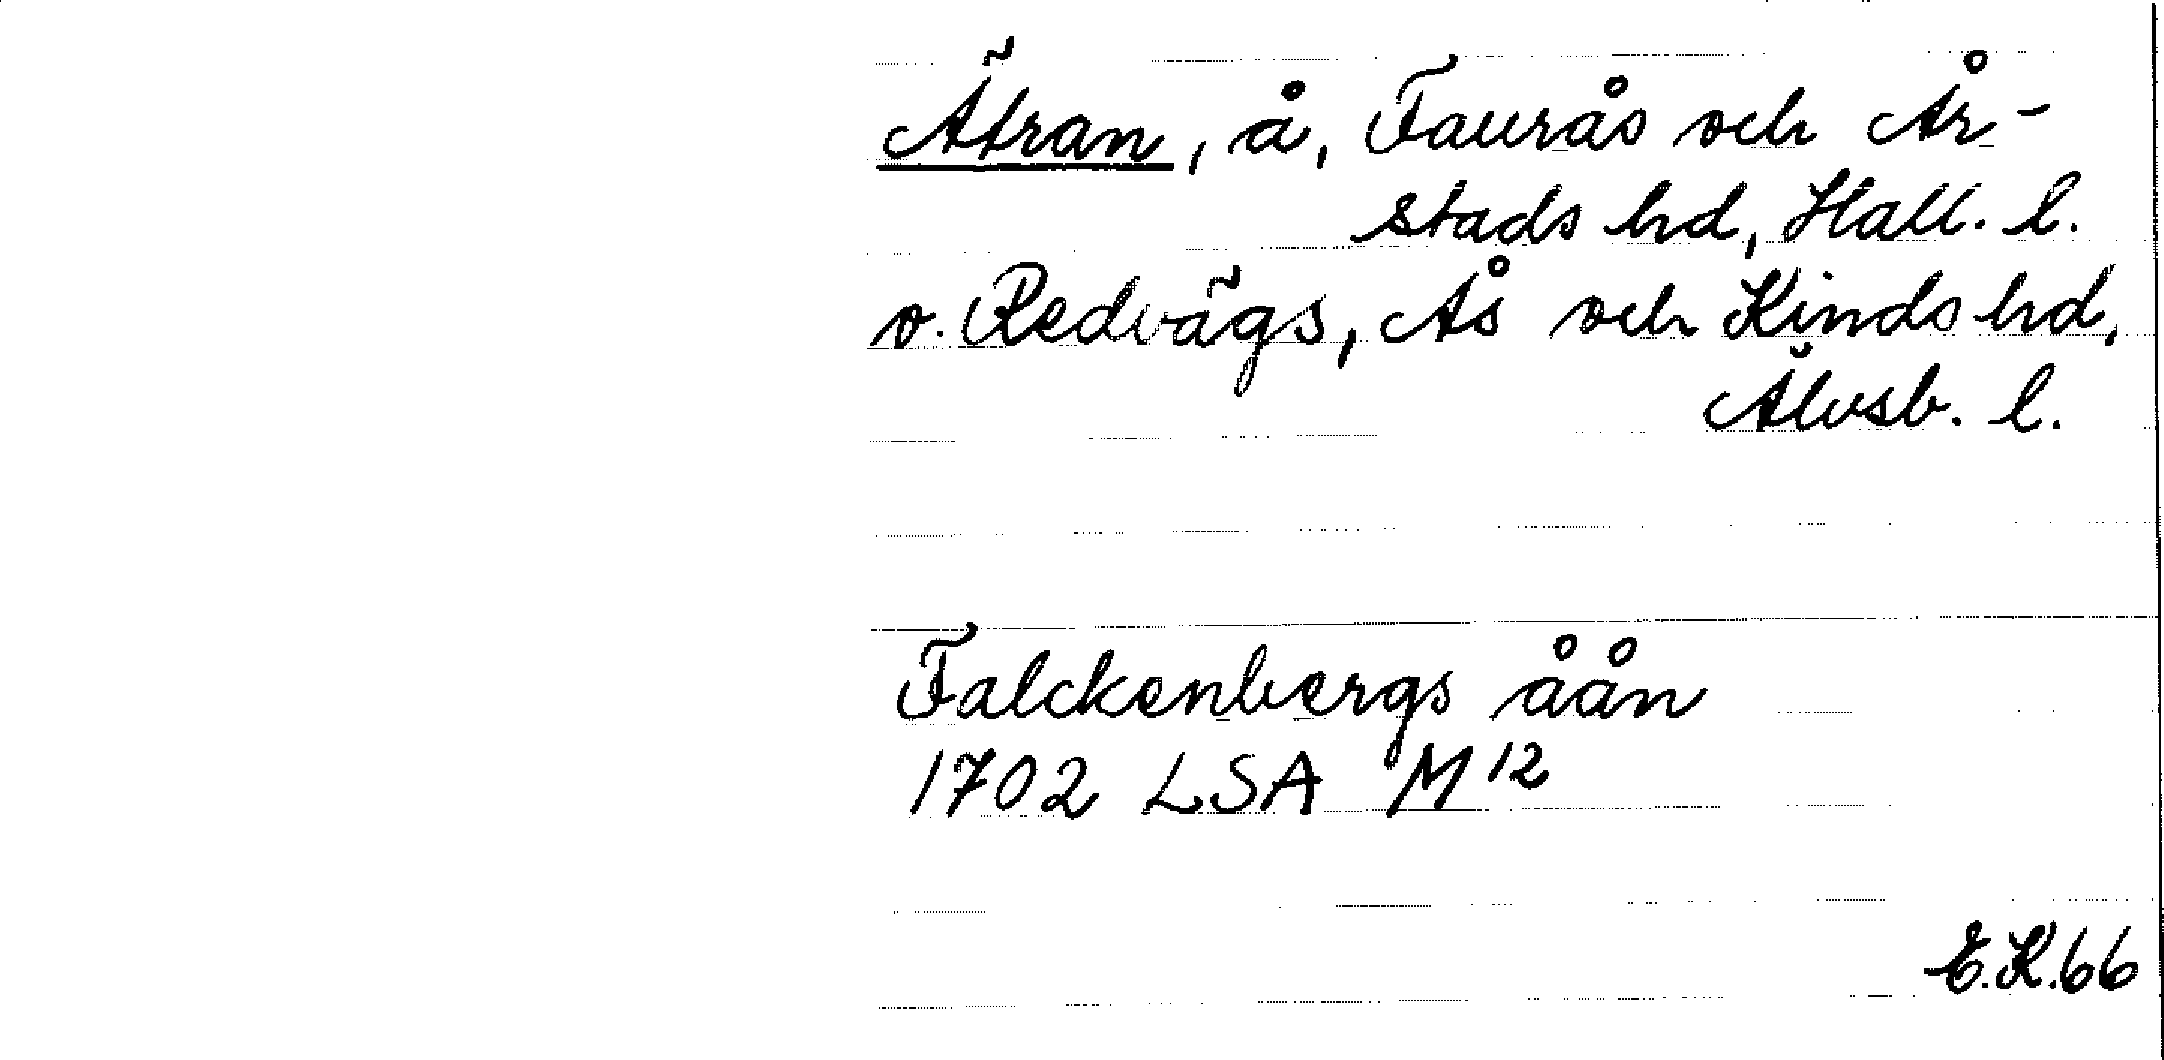 Ätran, å, Faurås och År-
stads hd, Hall. l.
o. Redvägs, Ås och Kinds hd,
Älvsb. l.
Falckenbergs åån
1702 LSA M 12
E.K.66